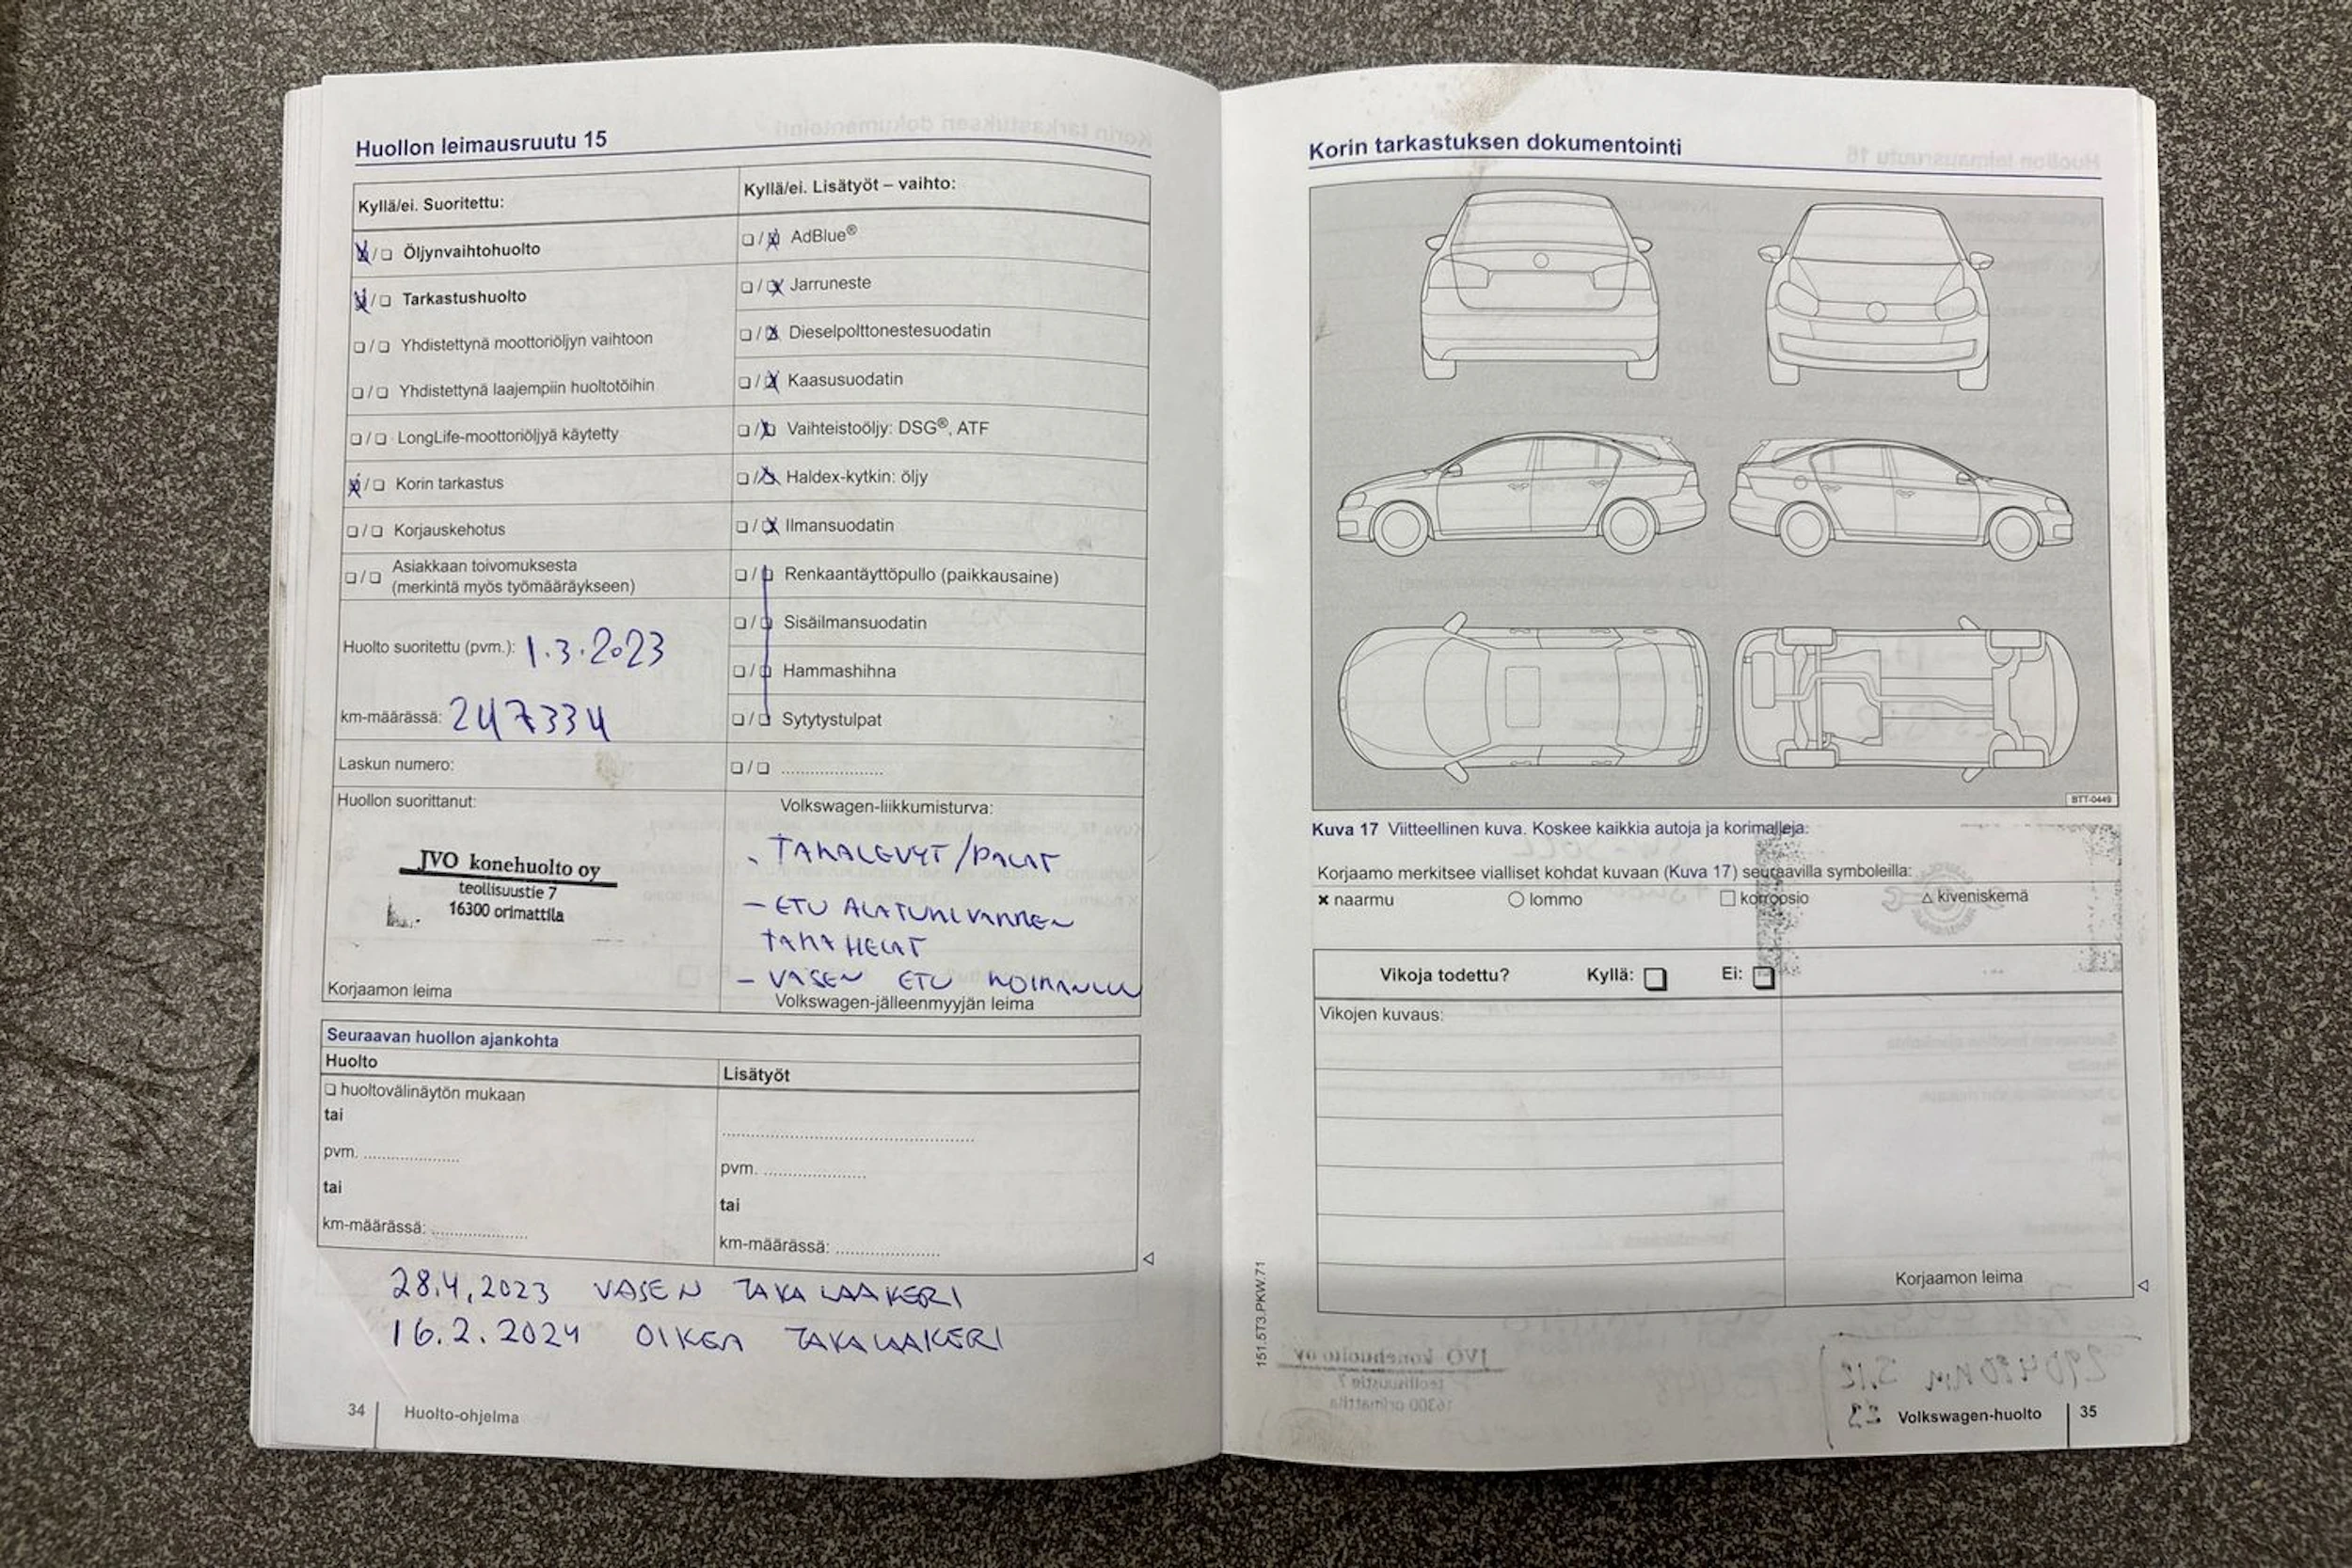 Huollon leimausruutu 15
Kyllä/ei. Suoritettu:
☒/☐ Öljynvaihtohuolto
☒/☐ Tarkastushuolto
☐/☐ Yhdistettynä moottoriöljyn vaihtoon
☐/☐ Yhdistettynä laajempiin huoltotöihin
☐/☐ LongLife-moottoriöljyä käytetty
☒/☐ Korin tarkastus
☐/☐ Korjauskehotus
☐/☐ Asiakkaan toivomuksesta
(merkintä myös työmääräykseen)
Huolto suoritettu (pvm.): 1.3.2023
km-määrässä: 247334
Laskun numero:
Huollon suorittanut:
JVO konehuolto oy
teollisuustie 7
16300 orimattila
Korjaamon leima
Kyllä/ei. Lisätyöt – vaihto:
☐/☒ AdBlue®
☐/☒ Jarruneste
☐/☒ Dieselpolttonestesuodatin
☐/☒ Kaasusuodatin
☐/☒ Vaihteistoöljy: DSG®, ATF
☐/☒ Haldex-kytkin: öljy
☐/☒ Ilmansuodatin
☐/☐ Renkaantäyttöpullo (paikkausaine)
☐/☐ Sisäilmansuodatin
☐/☐ Hammashihna
☐/☐ Sytytystulpat
☐/☐ ......................
Volkswagen-liikkumisturva:
- TAKALEVYT/PALAT
- ETU ALATUKIVARREN
TAKA HELAT
- VASEN ETU KOIRANLUU
Volkswagen-jälleenmyyjän leima
Seuraavan huollon ajankohta
Huolto
☐ huoltovälinäytön mukaan
tai
pvm. ....................
tai
km-määrässä: ....................
Lisätyöt
..................................................
pvm. ......................
tai
km-määrässä: ......................
28.4.2023 VASEN TAKA LAAKERI
16.2.2024 OIKEA TAKALAAKERI
34 Huolto-ohjelma
Korin tarkastuksen dokumentointi
BTT-0449
Kuva 17 Viitteellinen kuva. Koskee kaikkia autoja ja korimalleja:
Korjaamo merkitsee vialliset kohdat kuvaan (Kuva 17) seuraavilla symboleilla:
× naarmu ○ lommo □ korroosio △ kiveniskemä
Vikoja todettu? Kyllä: ☐ Ei: ☐
Vikojen kuvaus:
Korjaamon leima
151.5T3.PKW.71
Volkswagen-huolto 35